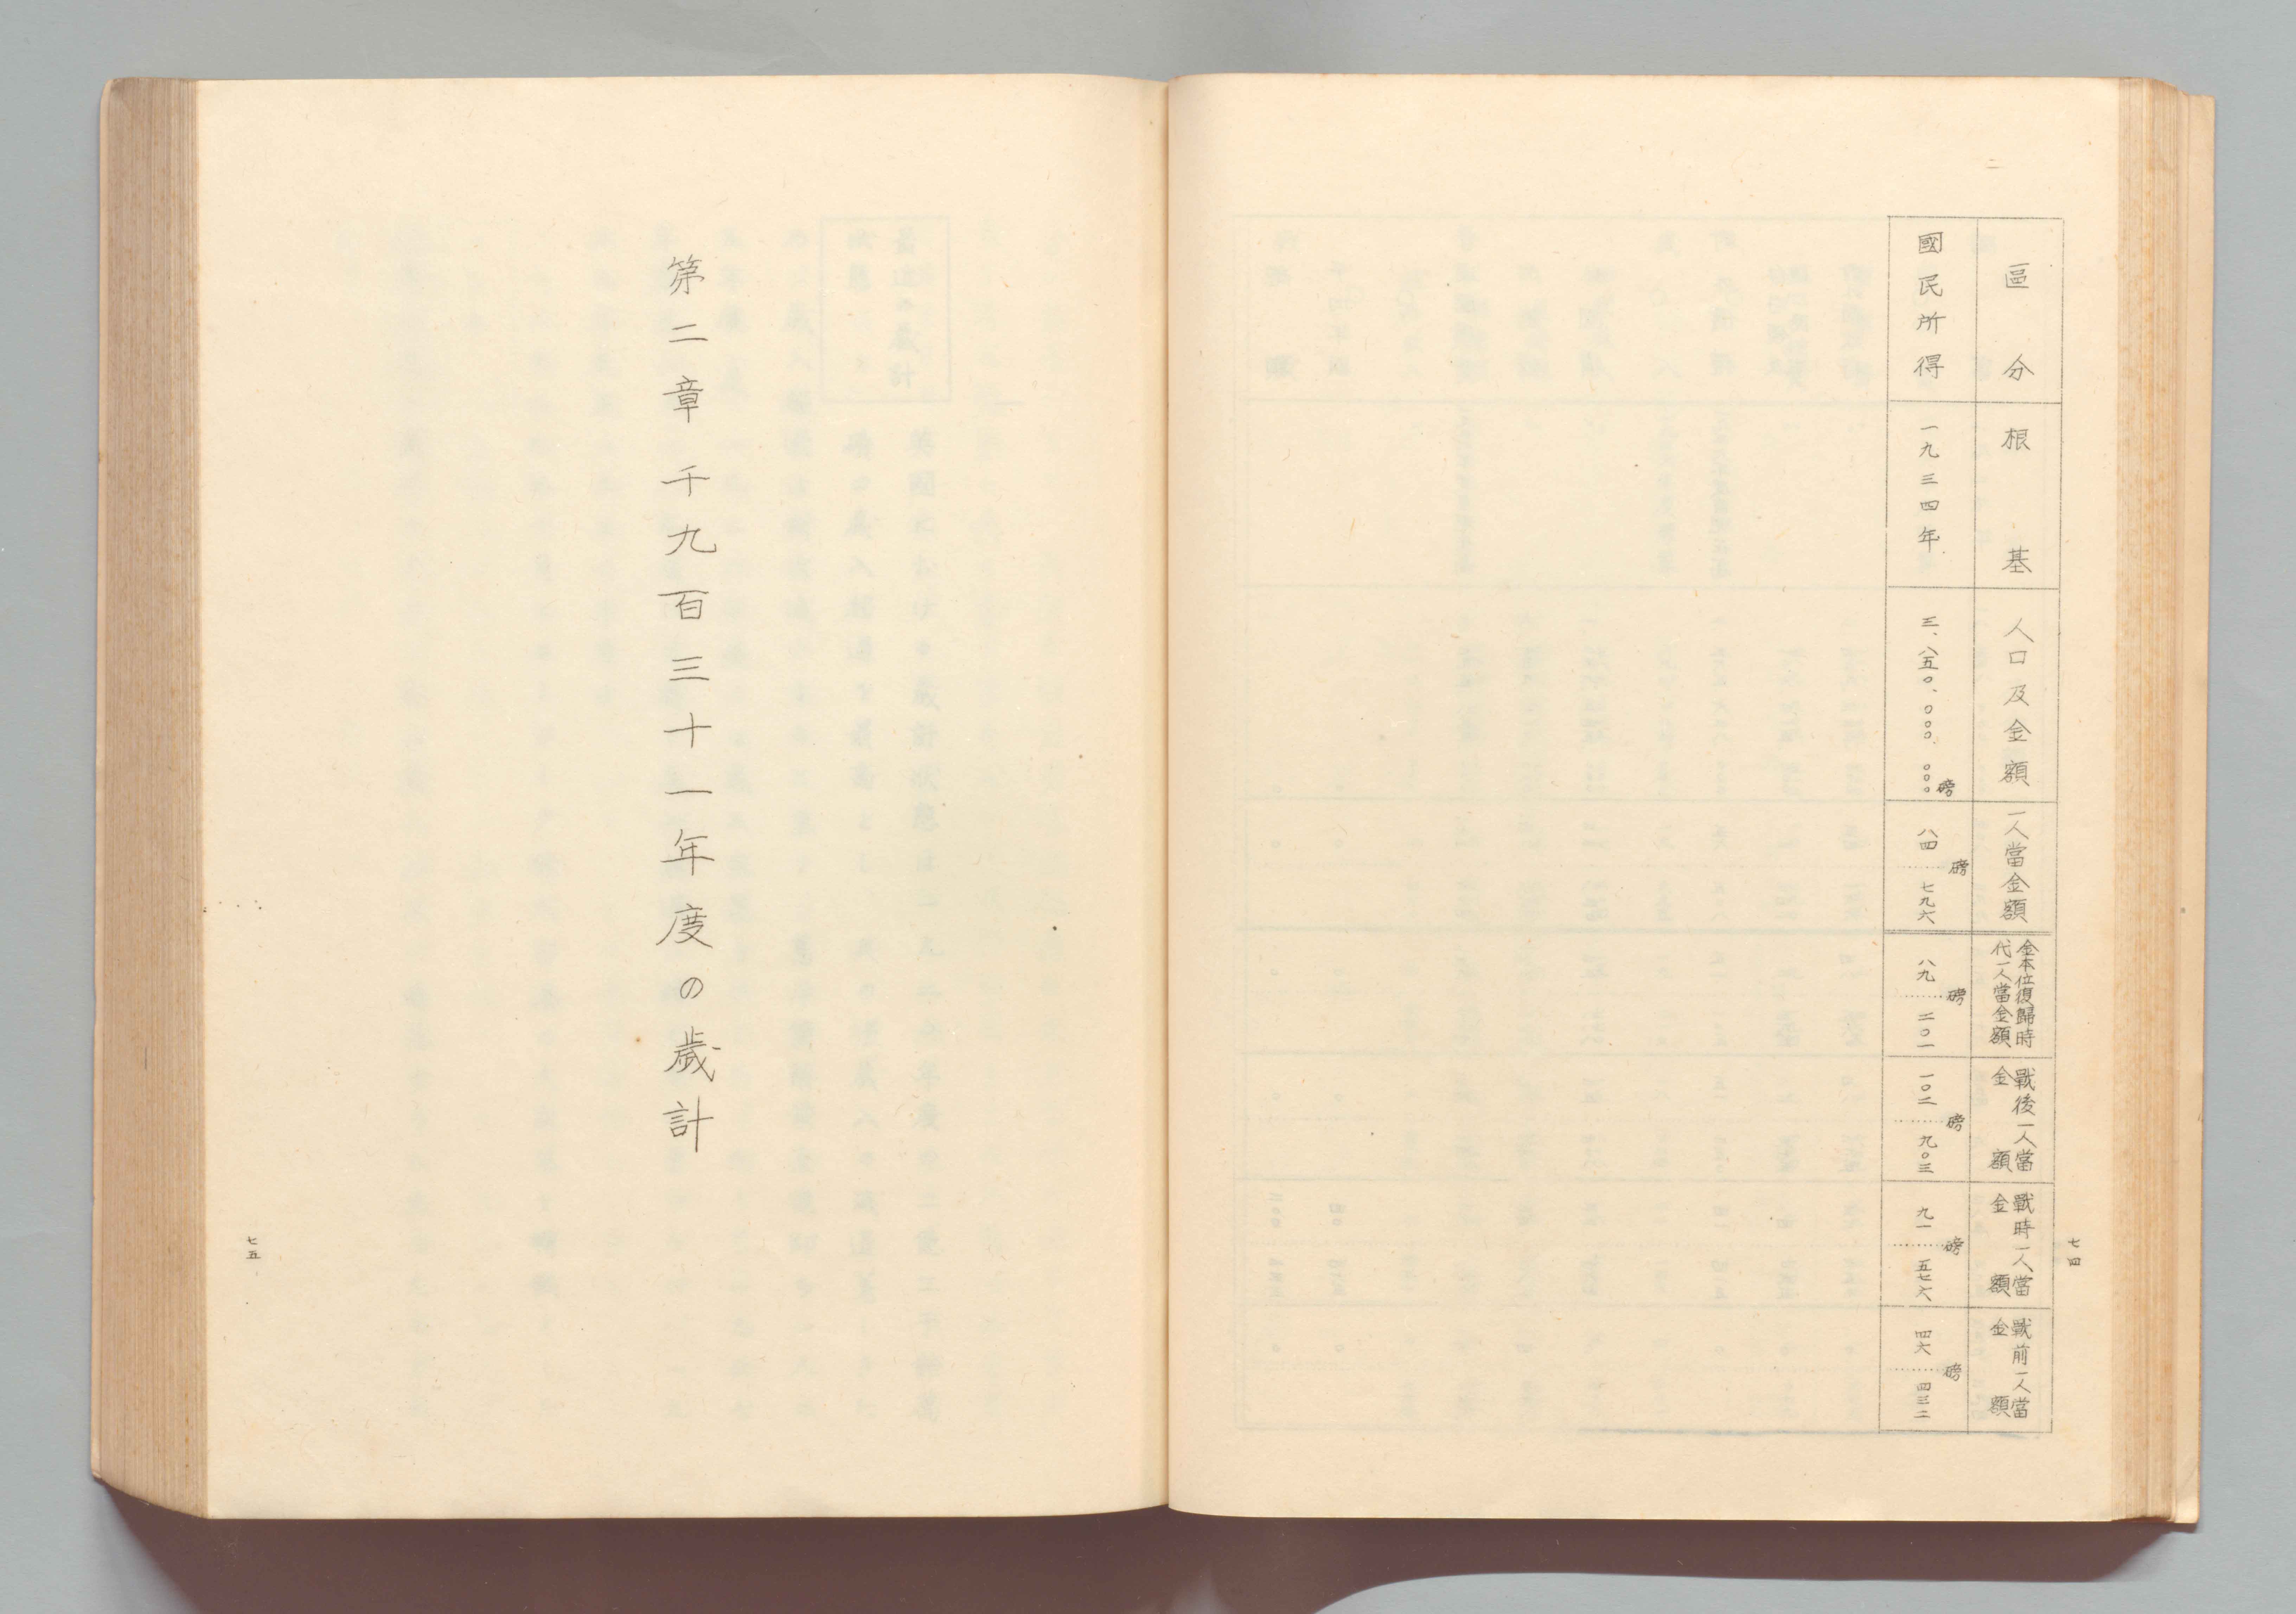 區分
根基
人口及金額
一人當金額
金本位復歸時
代一人當金額
戰後一人當
金額
戰時一人當
金額
戰前一人當
金額
國民所得
一九三四年
三、八五〇、〇〇〇、〇〇〇磅
八四磅七九六
八九磅二〇一
一〇二磅九〇三
九一磅五七六
四六磅四三二
七四
第二章 千九百三十一年度の歲計
七五